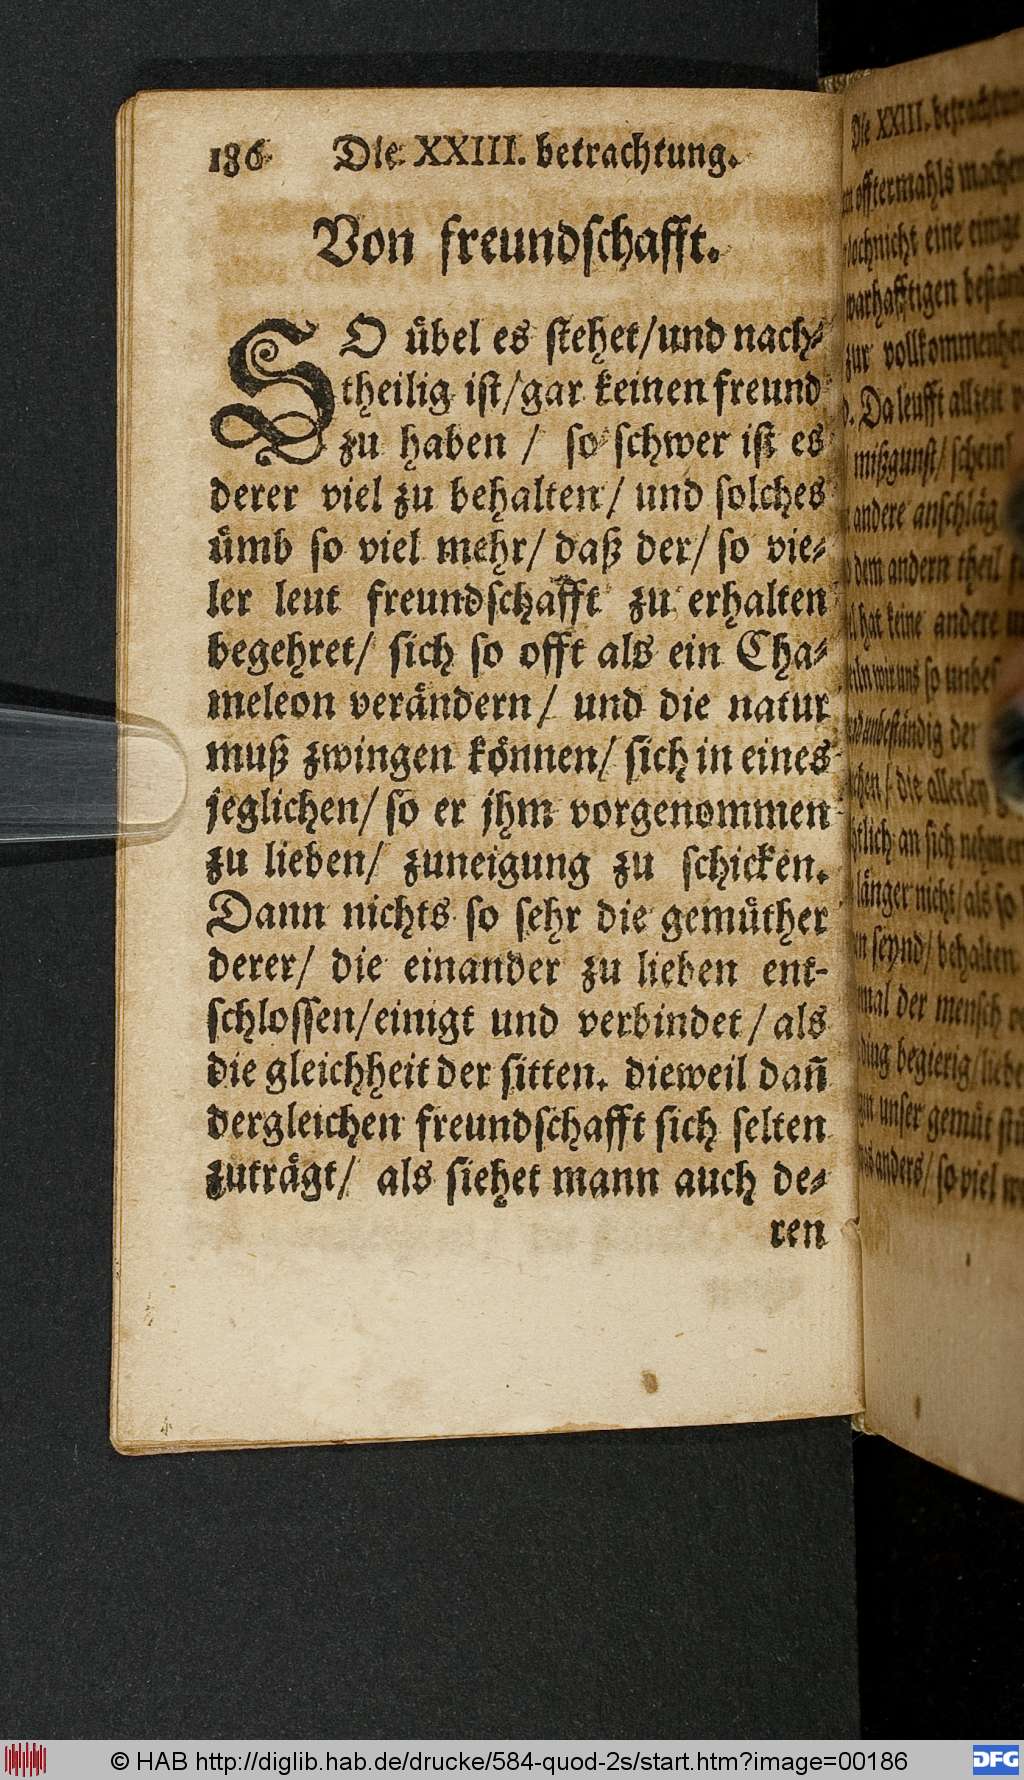 186 Die XXIII. betrachtung.
Von freundschafft.
SO übel es stehet/und nach-
theilig ist/gar keinen freund
zu haben / so schwer ist es
derer viel zu behalten/ und solches
ümb so viel mehr/ daß der/ so vie-
ler leut freundschafft zu erhalten
begehret/ sich so offt als ein Cha-
meleon verändern/ und die natur
muß zwingen können/ sich in eines
jeglichen/ so er jhm vorgenommen
zu lieben/ zuneigung zu schicken.
Dann nichts so sehr die gemüther
derer/ die einander zu lieben ent-
schlossen/einigt und verbindet/ als
die gleichheit der sitten. dieweil dañ
dergleichen freundschafft sich selten
zuträgt/ als siehet mann auch de-
ren
Die XXIII.
offtermahls machen
eine einige
warhafftigen
zur
Da leufft allzeit
mißgunst/ schein
andere anschläg
dem andern theil
hat keine andere
wir uns so unbes
unbeständig der
die allerley
an sich nehmen
länger nicht/ als so
seynd/ behalten
der mensch
begierig/ liebe
unser gemüt
anders/ so viel
© HAB http://diglib.hab.de/drucke/584-quod-2s/start.htm?image=00186
DFG